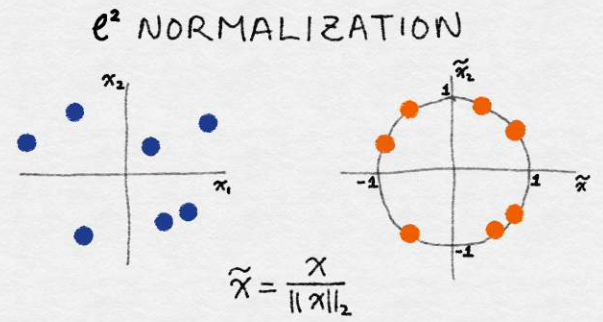 ℓ² NORMALIZATION
x₂
x₁
x̃₂
1
-1
1
x̃
-1
x̃ = x / ||x||₂